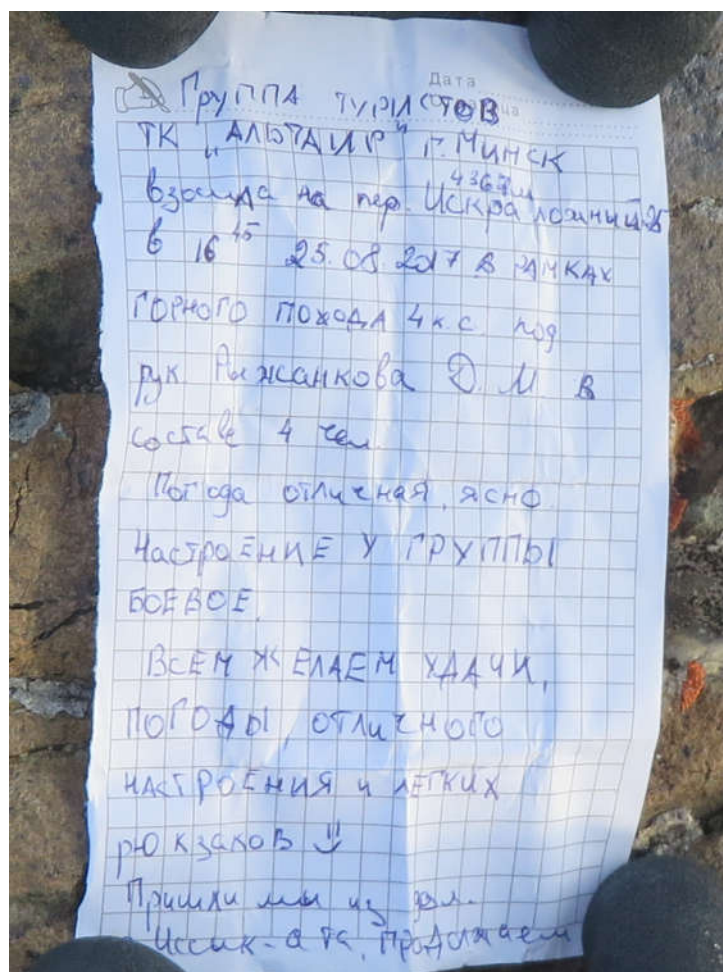 Дата
Группа туристов
ТК "АЛЬТАИР" г. Минск
4367м
взошла на пер. Искра ложный 2Б
в 16 45 25.08.2017 в рамках
ГОРНОГО ПОХОДА 4 к.с. под
рук. Рыжанкова Д. М. в
составе 4 чел.
Погода отличная, ясно.
Настроение у группы
БОЕВОЕ.
ВСЕМ ЖЕЛАЕМ УДАЧИ,
ПОГОДЫ, ОТЛИЧНОГО
НАСТРОЕНИЯ и ЛЕГКИХ
рюкзаков
Пришли мы из дол.
Иссык-ата, продолжаем